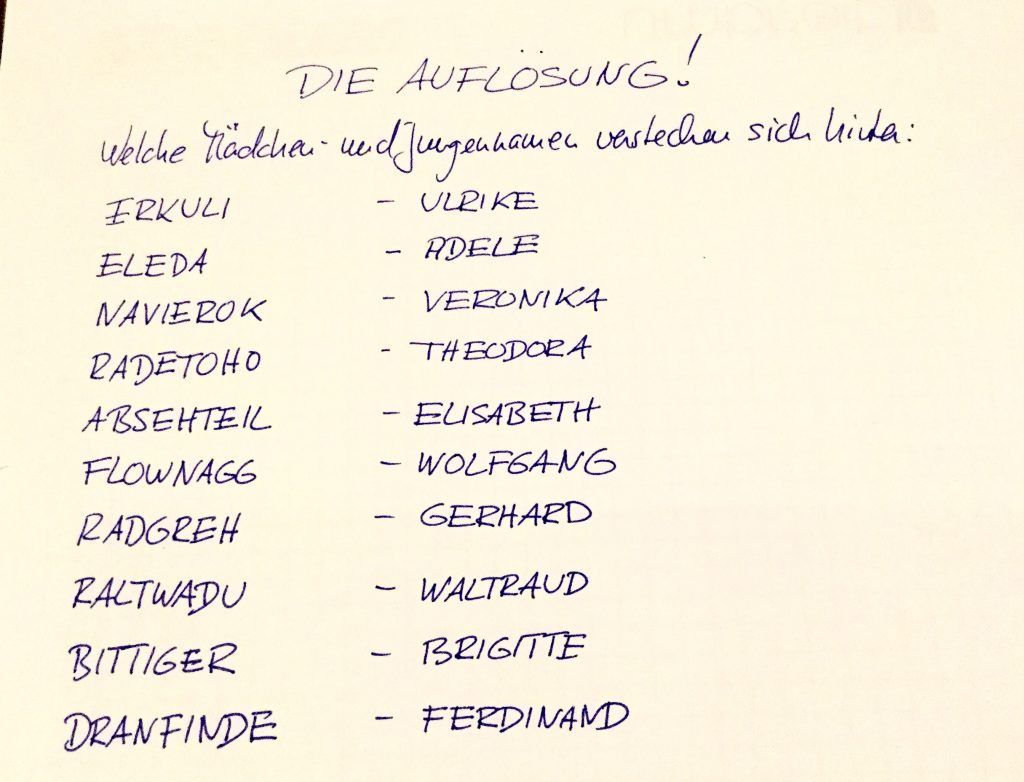 DIE AUFLÖSUNG!
Welche Mädchen- und Jungennamen verstecken sich hinter:
ERKULI - ULRIKE
ELEDA - ADELE
NAVIEROK - VERONIKA
RADETOHO - THEODORA
ABSEHTEIL - ELISABETH
FLOWNAGG - WOLFGANG
RADGREH - GERHARD
RALTWADU - WALTRAUD
BITTIGER - BRIGITTE
DRANFINDE - FERDINAND